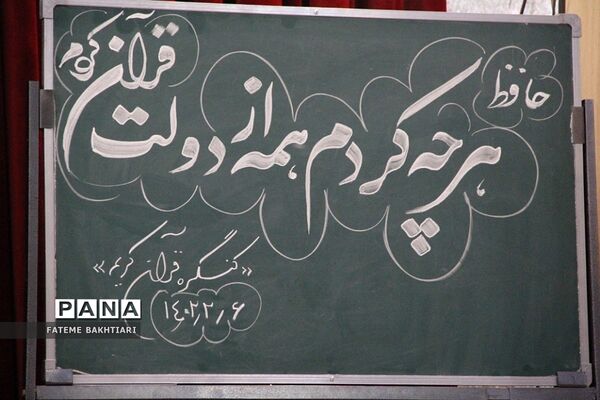 حافظ
هر چه کردم همه از دولت قرآن کردم
«کنگره قرآن کریم»
۱۴۰۲٫۲٫۶
PANA
FATEME BAKHTIARI